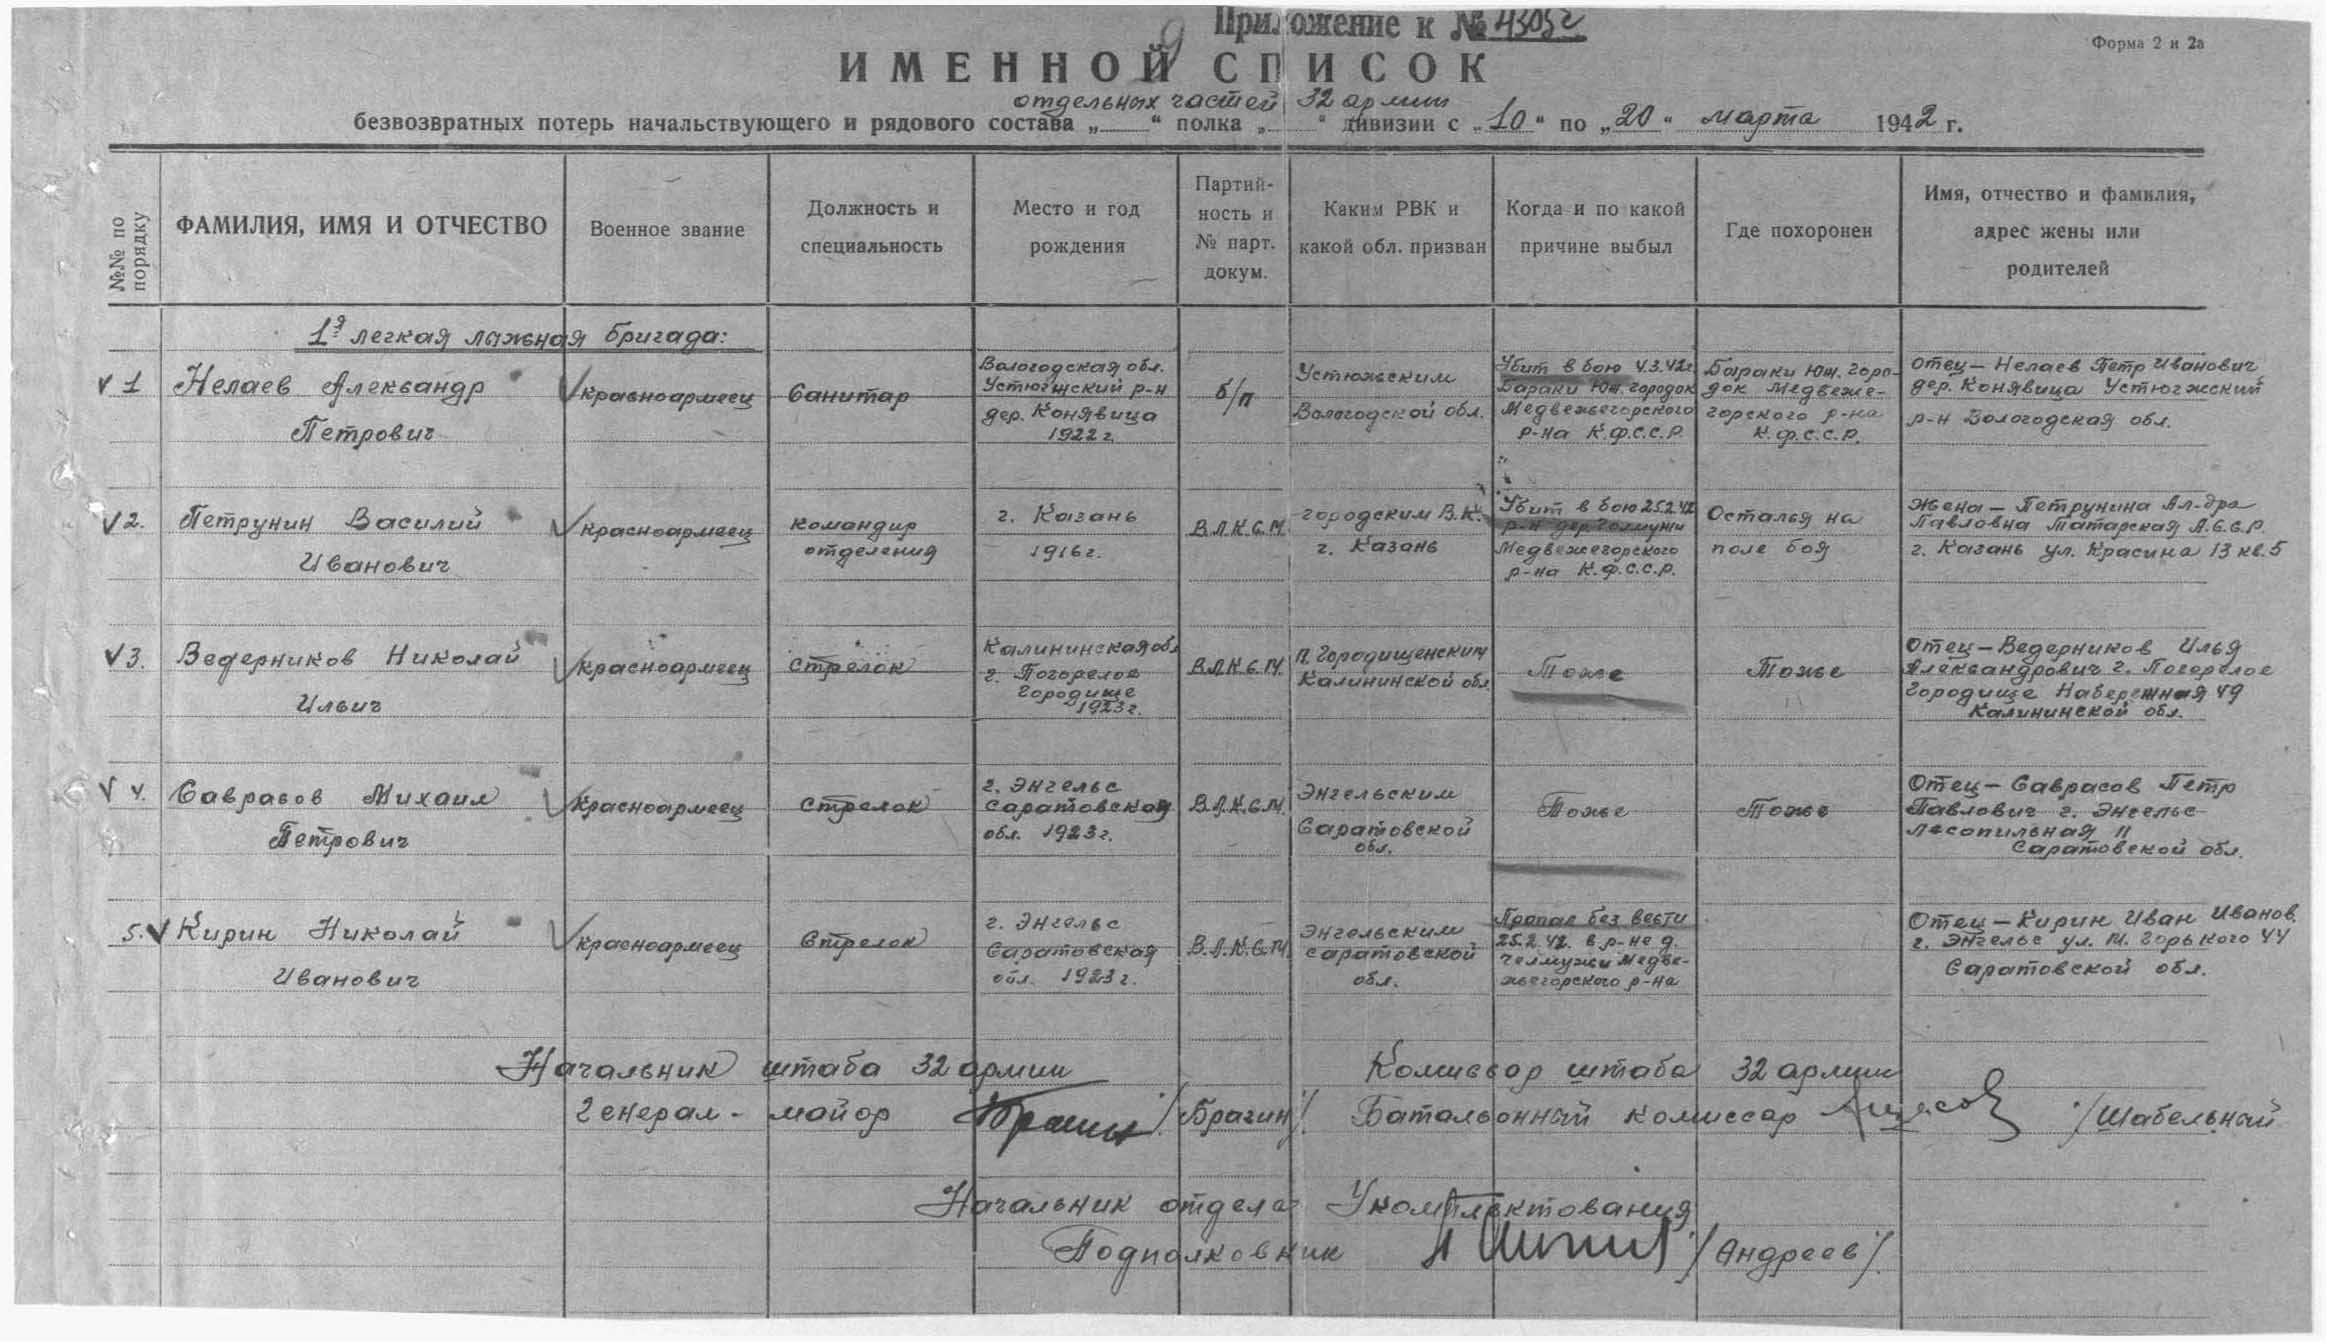 Приложение к № 4305с
9
Форма 2 и 2а
ИМЕННОЙ СПИСОК
отдельных частей 32 армии
безвозвратных потерь начальствующего и рядового состава „ “ полка „ “ дивизии с „10“ по „20“ марта 1942 г.
№№ по порядку
ФАМИЛИЯ, ИМЯ И ОТЧЕСТВО
Военное звание
Должность и
специальность
Место и год
рождения
Партий-
ность и
№ парт.
докум.
Каким РВК и
какой обл. призван
Когда и по какой
причине выбыл
Где похоронен
Имя, отчество и фамилия,
адрес жены или
родителей
1я легкая лыжная бригада:
1
Нелаев Александр
Петрович
красноармеец
Санитар
Вологодская обл.
Устюжский р-н
дер. Конявица
1922 г.
б/п
Устюжским
Вологодской обл.
Убит в бою 4.3.42г
Бараки Юж. городок
Медвежьегорского
р-на К.Ф.С.С.Р.
Бараки Юж. горо-
док Медвеже-
горского р-на
К.Ф.С.С.Р.
Отец – Нелаев Петр Иванович
дер. Конявица Устюгжский
р-н Вологодская обл.
2.
Петрунин Василий
Иванович
красноармеец
командир
отделения
г. Казань
1916 г.
В.Л.К.С.М.
городским В.К.
г. Казань
Убит в бою 25.2.42
р-н дер. Челмужи
Медвежегорского
р-на К.Ф.С.С.Р.
Остался на
поле боя
Жена – Петрунина Ал-дра
Павловна Татарская А.С.С.Р.
г. Казань ул. Красина 13 кв. 5
3.
Ведерников Николай
Ильич
красноармеец
Стрелок
Калининская обл
г. Погорелое
Городище
1923 г.
В.Л.К.С.М.
П. Городищенским
Калининской обл.
Тоже
Тоже
Отец – Ведерников Илья
Александрович г. Погорелое
Городище Набережная 49
Калининской обл.
4.
Саврасов Михаил
Петрович
красноармеец
Стрелок
г. Энгельс
Саратовской
обл. 1923 г.
В.Л.К.С.М.
Энгельским
Саратовской
обл.
Тоже
Тоже
Отец – Саврасов Петр
Павлович г. Энгельс
Лесопильная 11
Саратовской обл.
5.
Кирин Николай
Иванович
красноармеец
Стрелок
г. Энгельс
Саратовская
обл. 1923 г.
В.Л.К.С.М.
Энгельским
Саратовской
обл.
Пропал без вести
25.2.42. в р-не д.
Челмужи Медве-
жьегорского р-на
Отец – Кирин Иван Иванов.
г. Энгельс ул. М. Горького 44
Саратовской обл.
Начальник штаба 32 армии
Генерал-майор /Брагин/
Комиссар штаба 32 армии
Батальонный комиссар /Шабельный
Начальник отдела Укомплектования
Подполковник /Андреев/.